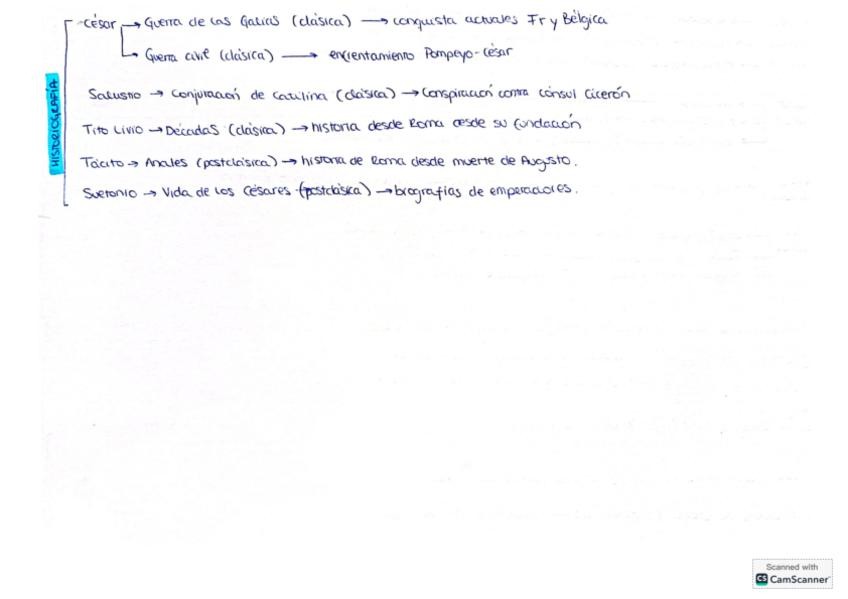 HISTORIOGRAFÍA
-César → Guerra de las Galias (clásica) → conquista actuales Fr y Bélgica
→ Guerra civil (clásica) → enfrentamiento Pompeyo-César
Salustio → Conjuración de Catilina (clásica) → Conspiración contra cónsul Cicerón
Tito Livio → Décadas (clásica) → historia desde Roma desde su fundación
Tácito → Anales (postclásica) → historia de Roma desde muerte de Augsto.
Suetonio → Vida de los Césares (postclásica) → biografías de emperadores.
Scanned with
CS CamScanner